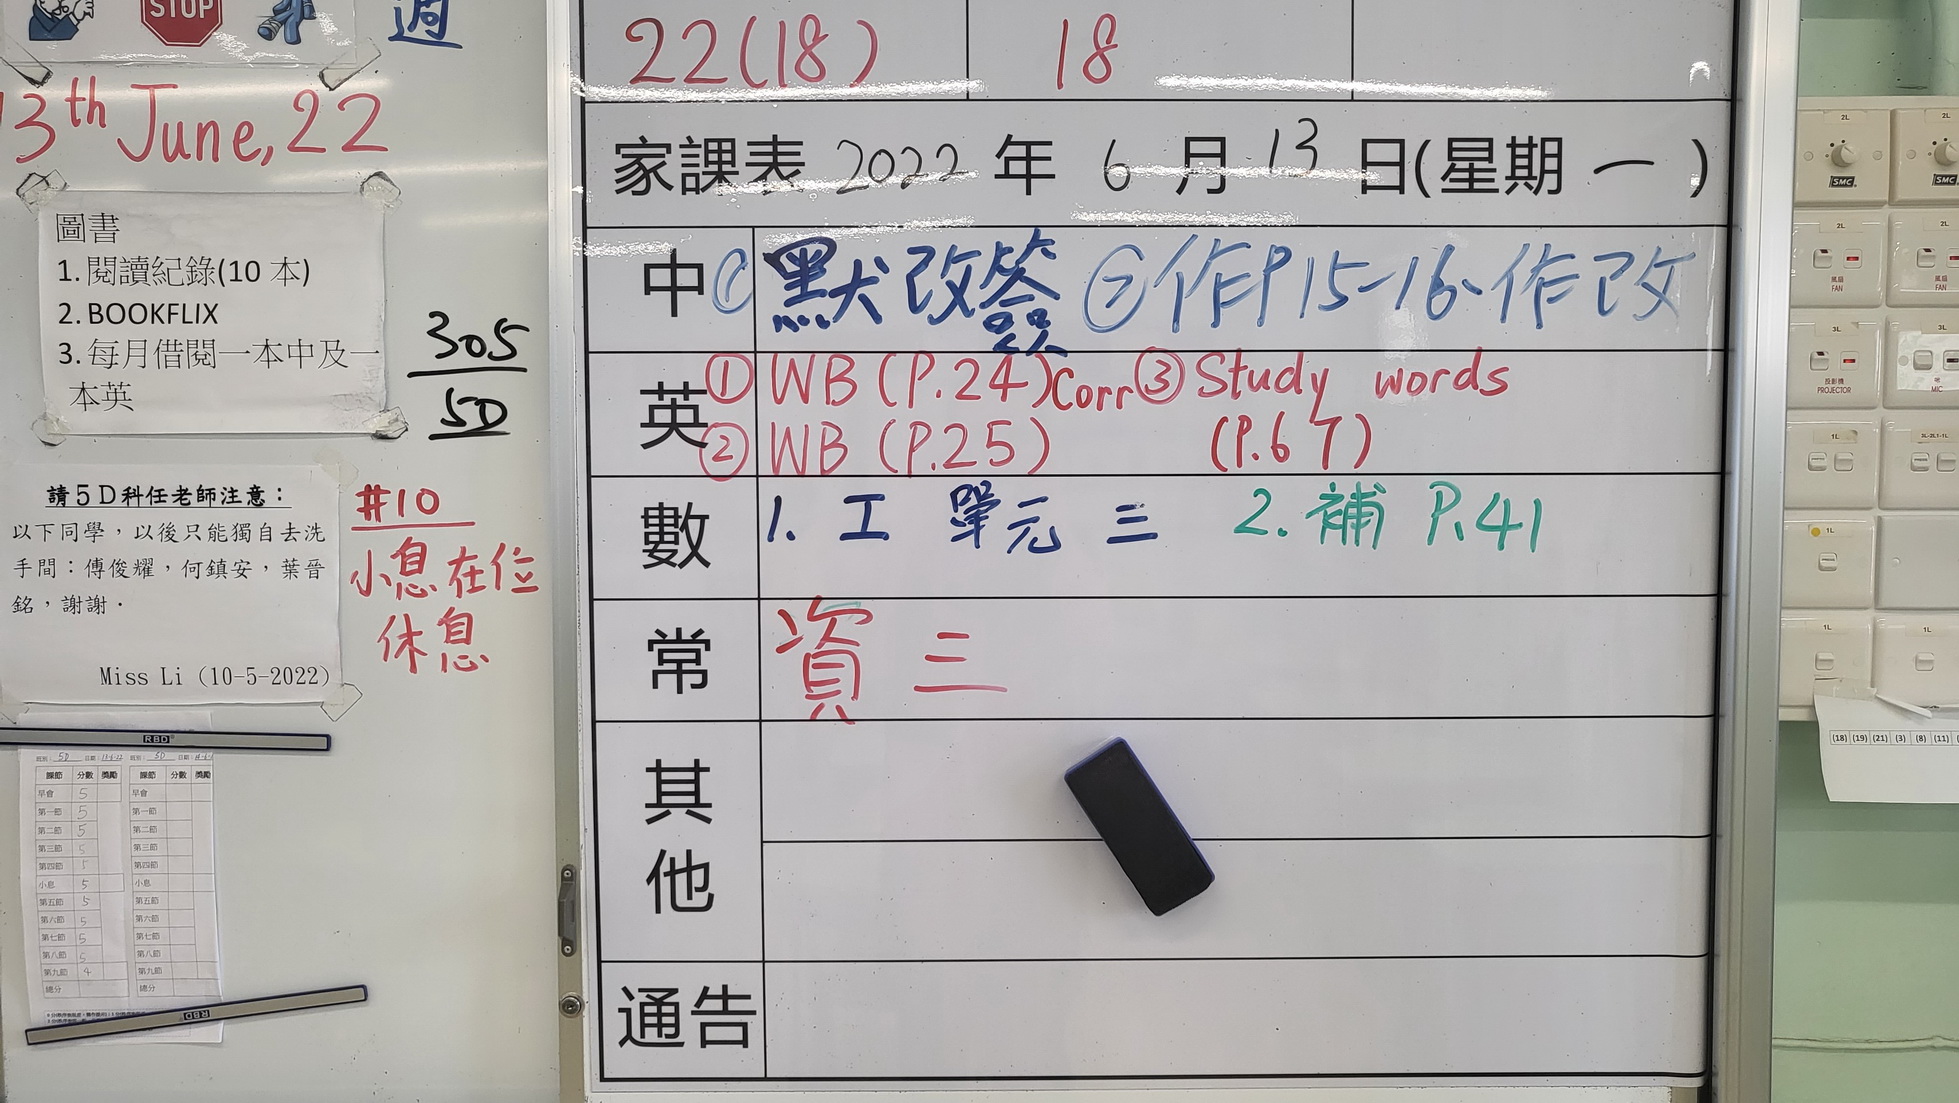 STOP
週
13th June, 22
圖書
1. 閱讀紀錄(10 本)
2. BOOKFLIX
3. 每月借閱一本中及一
本英
305
5D
請5D科任老師注意：
以下同學，以後只能獨自去洗
手間：傅俊耀，何鎮安，葉晉
銘，謝謝．
Miss Li (10-5-2022)
#10
小息在位
休息
RBD
5D
5D
課節 分數 獎勵 課節 分數 獎勵
早會 5 早會
第一節 5 第一節
第二節 5 第二節
第三節 5 第三節
第四節 5 第四節
小息 5 小息
第五節 5 第五節
第六節 5 第六節
第七節 5 第七節
第八節 5 第八節
第九節 4 第九節
總分 總分
RBD
22(18) 18
家課表 2022 年 6 月 13 日(星期 一 )
中 ① 默改簽 ② 作P15-16、作改
英 ① WB (P.24) Corr ③ Study words
② WB (P.25) (P.67)
數 1. 工 單元 三 2. 補 P.41
常 資 三
其他
通告
2L 2L
SMC SMC
2L 2L
風扇 風扇
FAN FAN
3L 3L
投影機
PROJECTOR MIC
1L
1L
1L 1L
(18) (19) (21) (3) (8) (11)